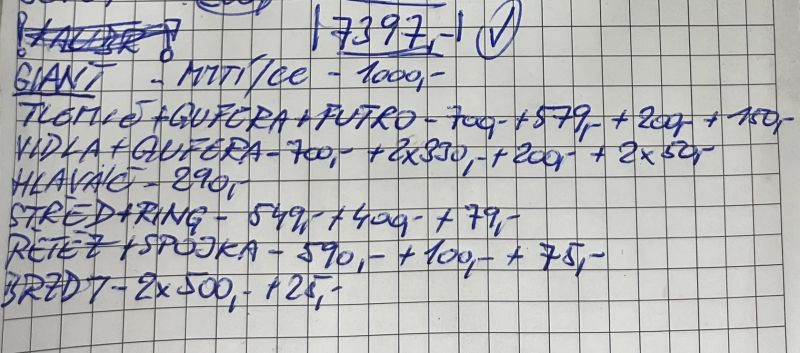 7397,- ✓
GIANT - MYTÍ/CC - 1000,-
TLUMIČ+QUFERA+FUTRO - 700,- +579,- + 200,- + 150,-
VIDLA + QUFERA - 700,- + 2x330,- + 200,- + 2x50,-
HLAVAIČ - 290,-
STŘED+RING - 549,- + 400,- + 79,-
ŘETĚZ + SPOJKA - 590,- + 100,- + 75,-
BRZDY - 2x500,- + 25,-